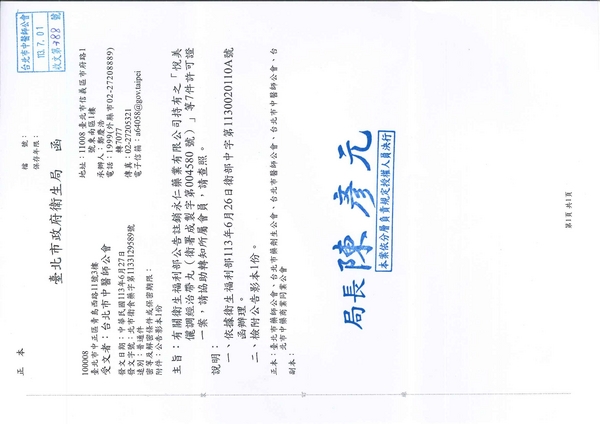 正本
檔　號：
保存年限：
臺北市政府衛生局　函
地址：11008 臺北市信義區市府路1號東南區1樓
承辦人：鄭慶浩
電話：1999(外縣市02-27208889)轉7077
傳真：02-27205321
電子信箱：a64058@gov.taipei
台北市中醫師公會
113.7.01
收文第788號
100008
臺北市中正區青島西路11號3樓
受文者：台北市中醫師公會
發文日期：中華民國113年6月27日
發文字號：北市衛食藥字第1133129589號
速別：普通件
密等及解密條件或保密期限：
附件：公告影本1份
主旨：有關衛生福利部公告註銷永仁藥業有限公司持有之「悅美
儷調經治帶丸（衛署成製字第004580號）」等7件許可證
一案，請協助轉知所屬會員，請查照。
說明：
一、依據衛生福利部113年6月26日衛部中字第1130020110A號
函辦理。
二、檢附公告影本1份。
正本：臺北市藥師公會、台北市藥劑生公會、台北市中醫師公會、台
北市中藥商業同業公會
副本：
局長 陳彥元
本案依分層負責規定授權人員決行
第1頁 共1頁